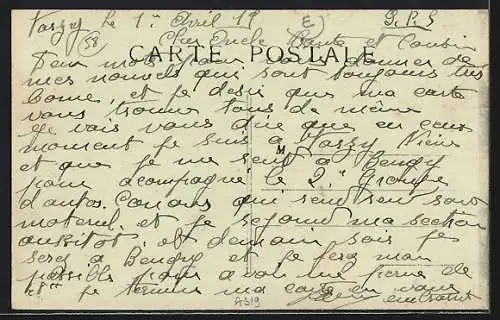 Varzy le 1er Avril 19
58
E
S. P. G
Cher Oncle Tante et Cousin
CARTE POSTALE
Deux mots pour vous donner de
mes nouvels qui sont toujours très
bonne, et je desir que ma carte
vous trouve tous de même
Je vais vous dire que en ceux
moment je suis a Varzy Nièvre
et que je me rend a Bengy
pour acompagné le 2e Groupe
d'autos. Canons qui rend leur
materiel. et je rejoind ma section
aussitot. et demain soir je
serai a Bengy et je ferai mon
possible pour avoir une perme de
je termine ma carte en vous
embrassant
A319